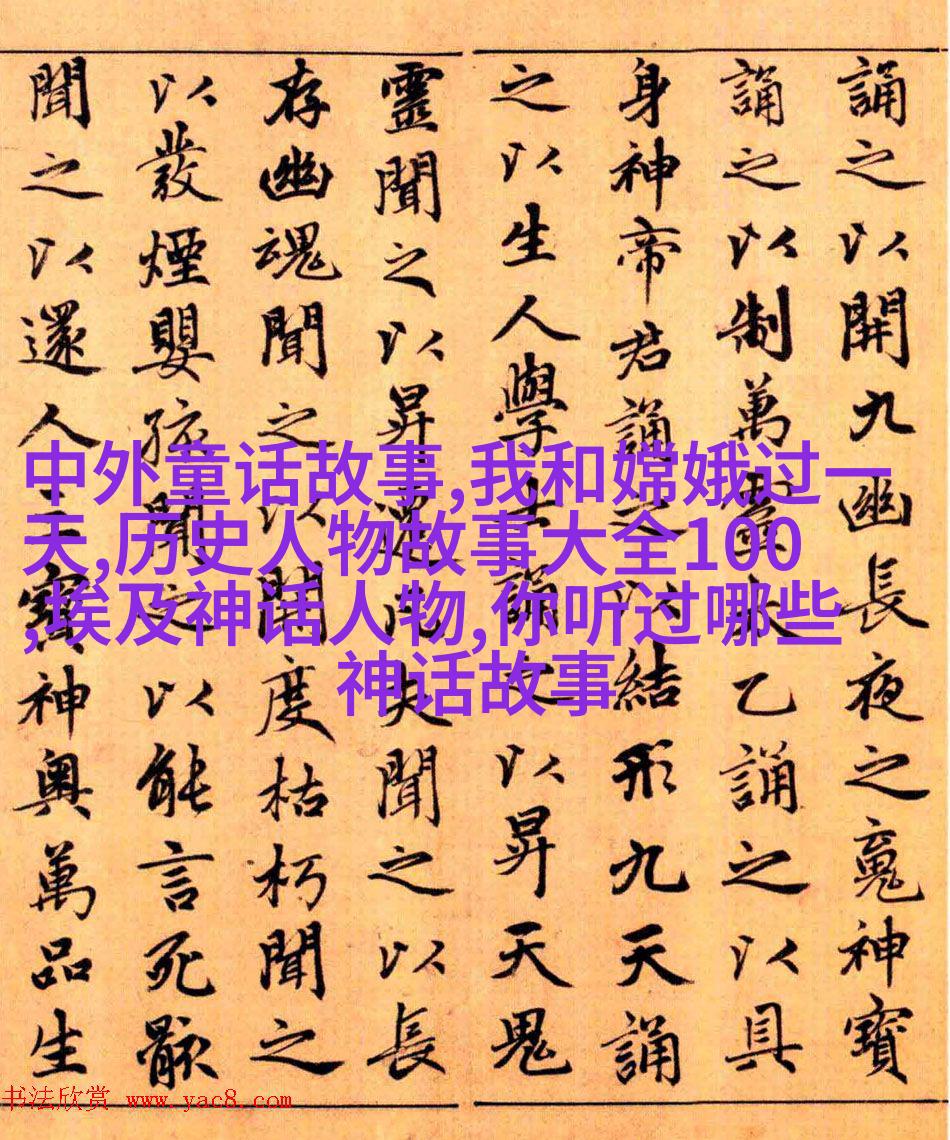 誦之以開九幽長夜之䰟神寶
誦之以制萬靈太乙誦之以具
身神帝君誦之以結形九天誦
之以生人學士誦之以昇天鬼
靈聞之以昇遷凡夫聞之以長
存幽魂聞之以開度枯朽聞之
以發煙嬰孩聞之以能言死骸
聞之以還人三寶神奧萬品生
中外童话故事,我和嫦娥过一
天,历史人物故事大全100
,埃及神话人物,你听过哪些
神话故事
书法欣赏 www.yac8.com